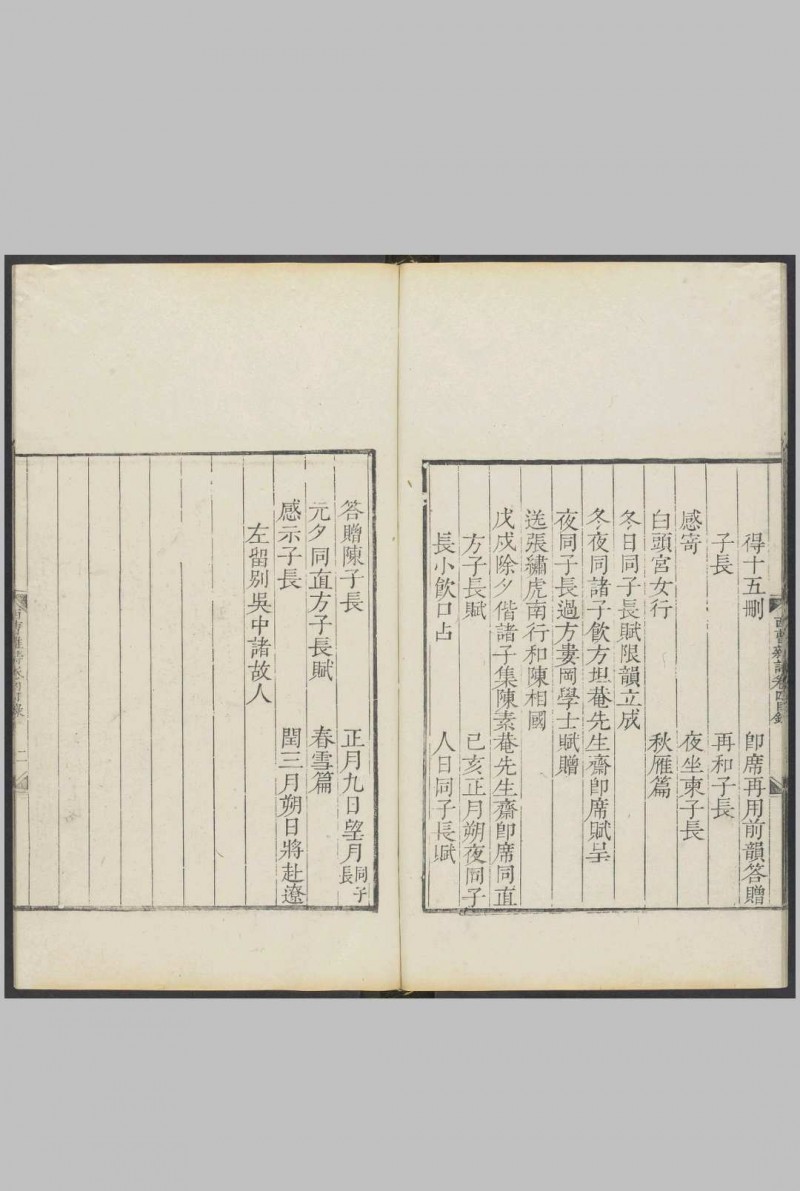 得十五刪　即席再用前韻答贈
子長　再和子長
感寄　夜坐柬子長
白頭宮女行　秋雁篇
冬日同子長賦限韻立成
冬夜同諸子飲方坦菴先生齋卽席賦呈
夜同子長過方婁岡學士賦贈
送張繡虎南行和陳相國
戊戌除夕偕諸子集陳素菴先生齋卽席同直
方子長賦　己亥正月朔夜同子
長小飲口占　人日同子長賦
答贈陳子長　正月九日望月同子長
元夕同直方子長賦　春雪篇
感示子長　閏三月朔日將赴遼
左留別吳中諸故人